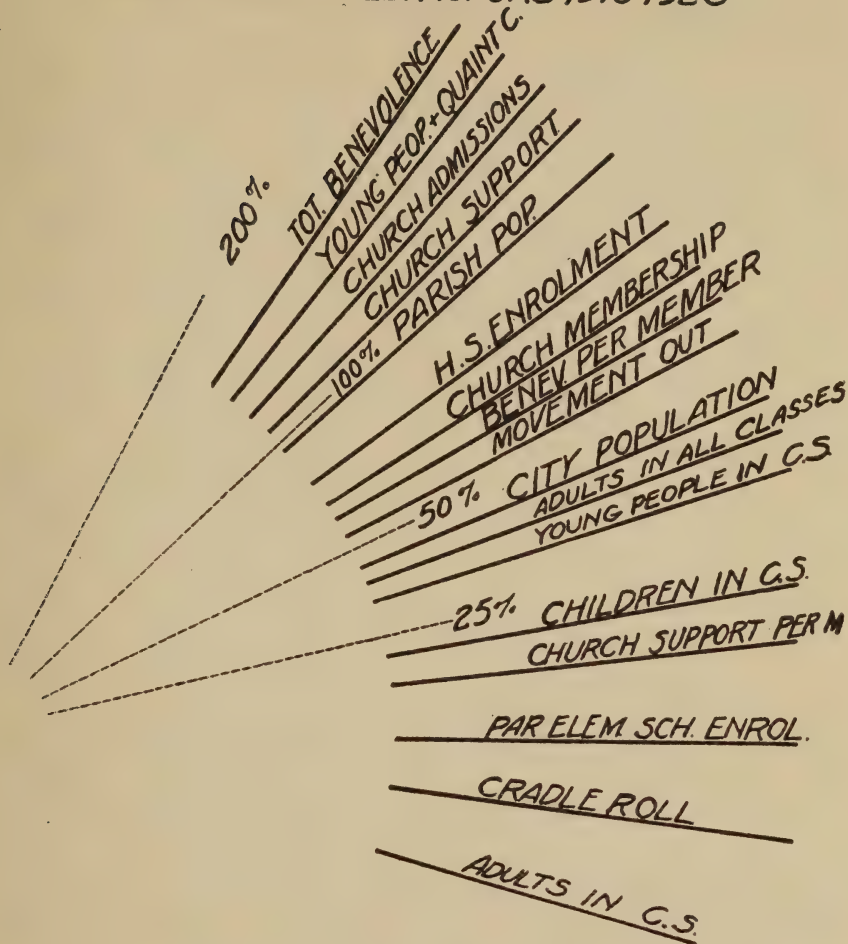 1910-1920
200%
TOT. BENEVOLENCE
YOUNG PEOP.+QUAINT C.
CHURCH ADMISSIONS
CHURCH SUPPORT
100% PARISH POP.
H.S. ENROLMENT
CHURCH MEMBERSHIP
BENEV. PER MEMBER
MOVEMENT OUT
50% CITY POPULATION
ADULTS IN ALL CLASSES
YOUNG PEOPLE IN C.S.
25% CHILDREN IN C.S.
CHURCH SUPPORT PER M
PAR ELEM. SCH. ENROL.
CRADLE ROLL
ADULTS IN C.S.